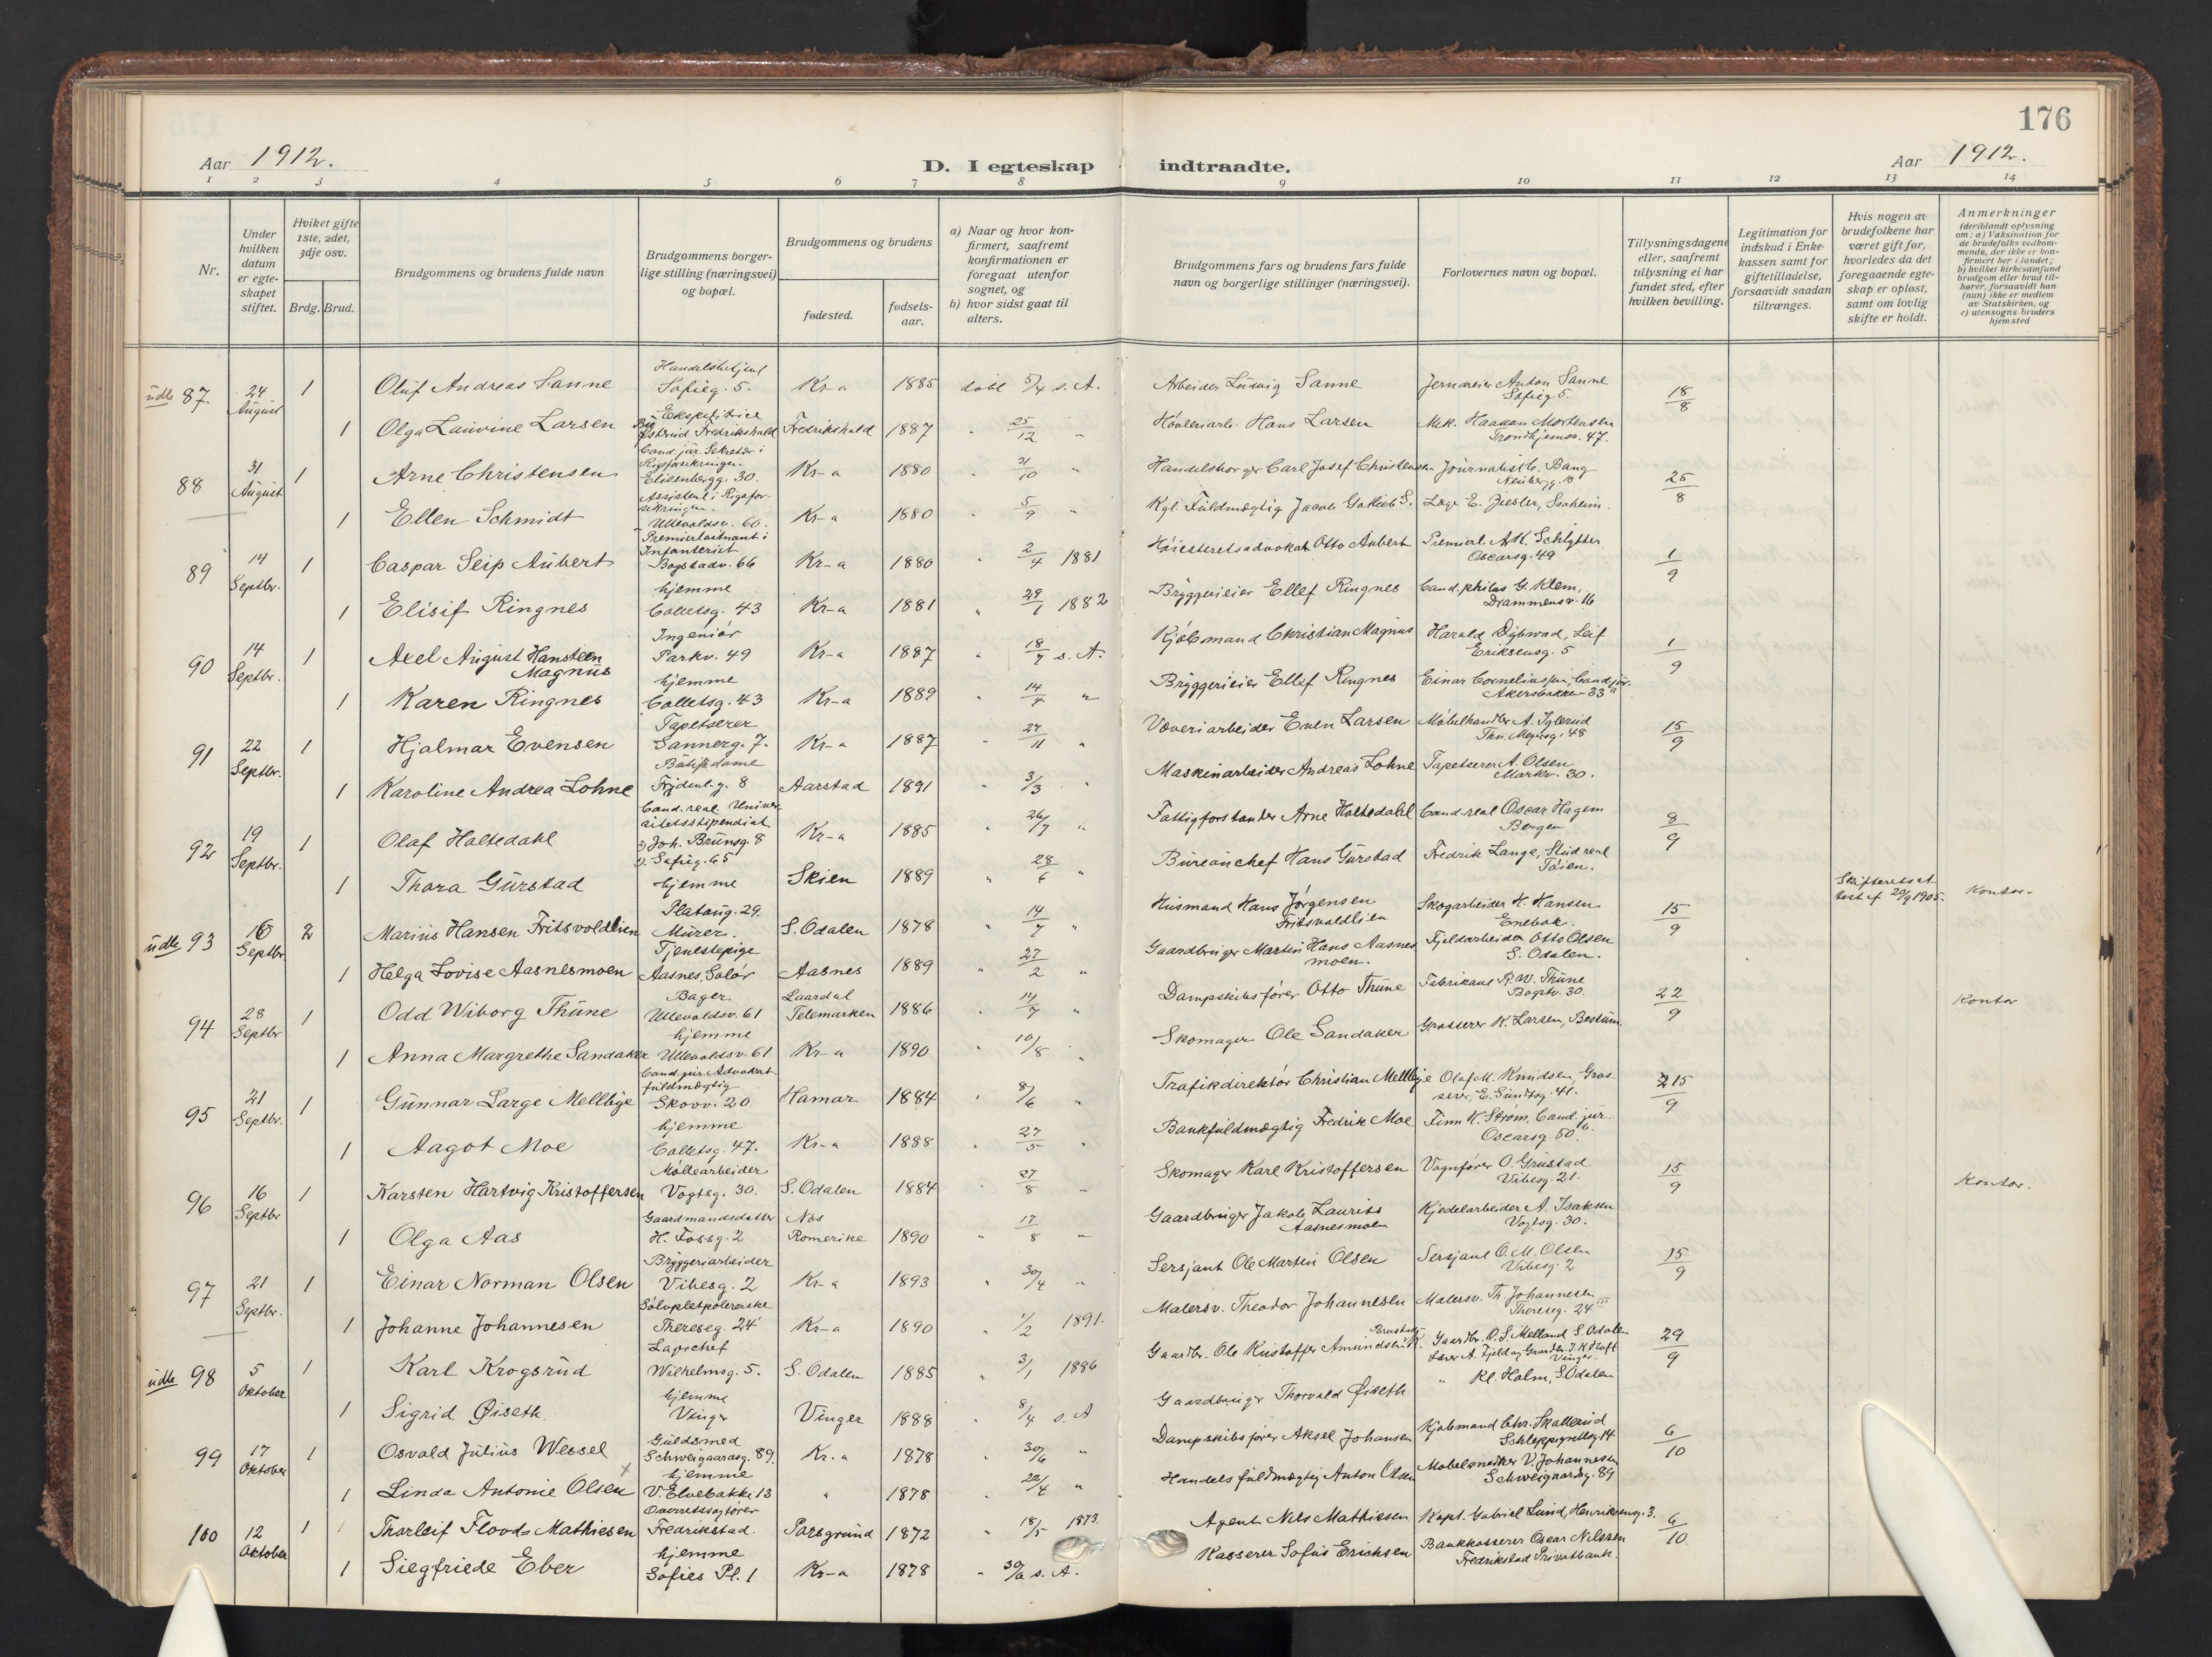 176
Aar 1912.
D. I egteskap indtraadte.
Aar 1912.
1 2 3 4 5 6 7 8 9 10 11 12 13 14
Nr.
Under hvilken datum er egteskapet stiftet.
Hviket gifte 1ste, 2det, 3dje osv.
Brdg. Brud.
Brudgommens og brudens fulde navn
Brudgommens borgerlige stilling (næringsvei) og bopæl.
Brudgommens og brudens
fødested.
fødselsaar.
a) Naar og hvor konfirmert, saafremt konfirmationen er foregaat utenfor sognet, og
b) hvor sidst gaat til alters.
Brudgommens fars og brudens fars fulde navn og borgerlige stillinger (næringsvei).
Forlovernes navn og bopæl.
Tillysningsdagene eller, saafremt tillysning ei har fundet sted, efter hvilken bevilling.
Legitimation for indskud i Enkekassen samt for giftetilladelse, forsaavidt saadan tiltrænges.
Hvis nogen av brudefolkene har været gift før, hvorledes da det foregaaende egteskap er opløst, samt om lovlig skifte er holdt.
Anmerkninger (deriblandt oplysning om: a) Vaksination for de brudefolks vedkommende, der ikke er konfirmert her i landet; b) hvilket kirkesamfund brudgom eller brud tilhører, forsaavidt han (hun) ikke er medlem av Statskirken, og c) utensogns bruders hjemsted
udle 87 24 August 1 Oluf Andreas Sanne Sofieg. 5. Kr-a 1885 døbt 5/4 s. A. Arbeider Ludvig Sanne Anton Sanne Sofieg. 5. 18/8
1 Olga Lauvine Larsen Fredrikshald Fredrikshald 1887 " 25/12 " Høvleriarb. Hans Larsen Mek. Haakon Mortensen Trondhjemsv. 47.
88 31 August 1 Arne Christensen Cand. jur. Sekretær i Rigsforsikringen Elisenbergg. 30. Kr-a 1880 31/10 " Handelsborger Carl Josef Christensen Journalist C. Bang 25/8
1 Ellen Schmidt Assistent i Rigsforsikringen Ullevoldsv. 60. Kr-a 1880 " 5/9 " Kgl. Fuldmægtig Jacob Gotlieb S. Læge E. Ziesler, Saaheim.
89 14 Septbr. 1 Caspar Seip Aubert Premierløitnant i Infanteriet Bogstadv. 66 Kr-a 1880 " 2/4 1881 Høiesteretsadvokat Otto Aubert Premierl. A. K. Schlytter Oscarsg. 49 1/9
1 Elisif Ringnes hjemme Colletsg. 43 Kr-a 1881 " 29/1 1882 Bryggerieier Ellef Ringnes Cand. philos G. Klem, Drammensv. 16
90 14 Septbr. 1 Axel August Hansteen Magnus Ingeniør Parkv. 49 Kr-a 1887 " 18/7 s. A. Kjøbmand Christian Magnus Harald Dybwad, Leif Eriksensg. 5 1/9
1 Karen Ringnes hjemme Colletsg. 43 Kr-a 1889 " 14/4 " Bryggerieier Ellef Ringnes Einar Corneliussen, Cand. jur. Akersbakken 33
91 22 Septbr. 1 Hjalmar Evensen Tapetserer Sannerg. 7. Kr-a 1887 " 27/11 " Væveriarbeider Even Larsen Møbelhandler A. Iglerud Thv. Meyersg. 48 15/9
1 Karoline Andrea Lohne Butikdame 8 Aarstad 1891 " 3/3 " Maskinarbeider Andreas Lohne Tapetserer A. Olsen Markv. 30.
92 19 Septbr. 1 Olaf Holtedahl Cand. real. Universitetsstipendiat Joh. Brunsg. 8 Sofieg. 65 Kr-a 1885 " 26/7 " Fattigforstander Arne Holtedahl Cand. real Oscar Hagem Bergen 8/9
1 Thora Gurstad hjemme Skien 1889 " 28/6 " Bureauchef Hans Gurstad Fredrik Lange, Stud real Tøien.
udle 93 16 Septbr. 2 Marius Hansen Fritsvoldlien Platoug. 29. Murer. S. Odalen 1878 14/7 " Husmand Hans Jørgensen Fritsvoldlien Skogarbeider H. Hansen Enebak. 15/9 Skifteretsattest af 20/9 1905. Kontor.
1 Helga Lovise Aasnesmoen Tjenestepige Aasnes, Solør Aasnes 1889 " 27/2 " Gaardbruger Martin Hans Aasnesmoen. Fjeldarbeider Otto Olsen S. Odalen.
94 28 Septbr 1 Odd Wiborg Thune Bager Ullevoldsv. 61 Laardal Telemarken 1886 " 14/7 " Dampskibsfører Otto Thune Fabrikant R. W. Thune Bogstv. 30. 22/9 Kontor
1 Anna Margrethe Sandaker hjemme Ullevoldsv. 61 Kr-a 1890 " 10/8 " Skomager Ole Sandaker Grosserer K. Larsen, Bestum.
95 21 Septbr. 1 Gunnar Large Mellbye Cand. jur. Advokatfuldmægtig Skovv. 20 Hamar 1884 " 8/6 " Trafikdirektør Christian Mellbye Olaf M. Knudsen, Grosserer, E. Sundtsg. 41. 15/9
1 Aagot Moe hjemme Colletsg. 47. Kr-a 1888 " 27/5 " Bankfuldmægtig Fredrik Moe Finn K. Strøm, Cand. jur. Oscarsg. 50
96 16 Septbr 1 Karsten Hartvig Kristoffersen Møllearbeider Vogtsg. 30. S. Odalen 1884 " 27/8 " Skomager Karl Kristoffersen Vognfører O. Grustad Vibesg. 21. 15/9 Kontor.
1 Olga Aas Gaardmandsdatter H. Fossg. 2 Nes Romerike 1890 " 17/8 " Gaardbruger Jakob Laurits Aasnesmoen Kjedelarbeider A. Isaksen Vogtsg. 30.
97 21 Septbr. 1 Einar Norman Olsen Bryggeriarbeider Vibesg. 2 Kr-a 1893 " 30/4 " Sersjant Ole Martin Olsen Sersjant O. M. Olsen Vibesg. 2 15/9
1 Johanne Johannesen Sølvpletpolererske Thereseg. 24 Kr-a 1890 " 1/2 1891. Malersv. Theodor Johannesen Malersv. Th. Johannesen Thereseg. 24 III
udle 98 5 Oktober 1 Karl Krogsrud Lapschef Wilhelmsg. 5. S. Odalen 1885 " 3/1 1886 Gaardbr. Ole Kristoffer Amundsen Gaardbr. O. S. Melland S. Odalen 29/9
1 Sigrid Øiseth. hjemme Vinger Vinger 1888 " 8/4 s. A Gaardbruger Thorvald Øiseth " Kl. Holm, S. Odalen
99 17 Oktober 1 Osvald Julius Wessel Guldsmed Schweigaardsg. 89. Kr-a 1878 " 30/6 " Dampskibsfører Aksel Johansen Kjøbmand Chr. Skallerud Schleppegrellsg. 14 6/10
1 Linda Antonie Olsen hjemme V. Elvebakke 13 " 1878 " 22/4 " Handelsfuldmægtig Anton Olsen Møbelsnedker V. Johannesen Schweigaardsg. 89
100 12 Oktober 1 Thorleif Floods Mathiesen Overretssagfører Fredrikstad. Porsgrund 1872 " 18/5 1873. Agent Nils Mathiesen Kapt. Gabriel Lund, Henriksensg. 3. 6/10
1 Siegfriede Eber hjemme Sofies Pl. 1 Kr-a 1878 " s. A. Kasserer Sofus Erichsen Bankkasserer Oscar Nilssen Fredrikstad Privatbank.